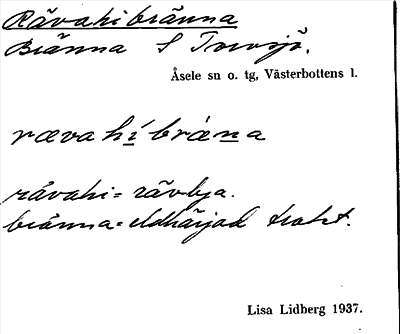 Råvahibränna
Bränna S Torvsjö.
Åsele sn o. tg, Västerbottens l.
rævahíbrǽna
råvahi = rävlya.
bränna = eldhärjad trakt.
Lisa Lidberg 1937.